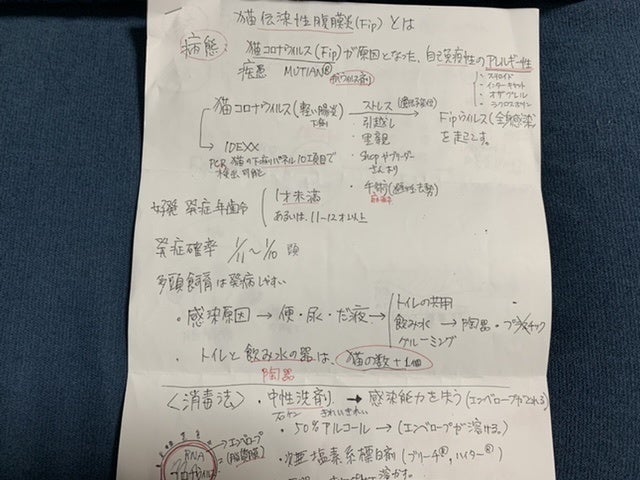 猫伝染性腹膜炎(Fip)とは
病態
猫コロナウイルス(Fip)が原因となった、自己免疫性のアレルギー性
疾患 MUTIAN® 抗ウイルス剤
・ステロイド
・インターキャット
・オザグレル
・シクロスポリン
猫コロナウイルス(軽い腸炎 下痢)
ストレス(遺伝子変位)
Fipウイルス(全身感染)
を起こす。
・引越し
・里親
・Shopやブリーダーさんより
・手術(避妊去勢)
IDEXX
PCR 猫の下痢パネル10項目で
検出可能
好発 発症年齢
1才未満
あるいは、11〜12才以上
発症確率 1/11〜1/10 頭
多頭飼育は発病しやすい
・感染原因 → 便・尿・だ液 →
トイレの共用
飲み水 → 陶器・プラスチック
グルーミング
・トイレと飲み水の器は、猫の数+1個
陶器
〈消毒法〉・中性洗剤 → 感染能力を失う(エンベロープがとれる)
石ケン きれいきれい
・50%アルコール → (エンベロープが溶ける。)
エンベロープ
(脂質膜)
RNA
・次亜塩素系漂白剤(ブリーチ®, ハイター®)
溶かす。